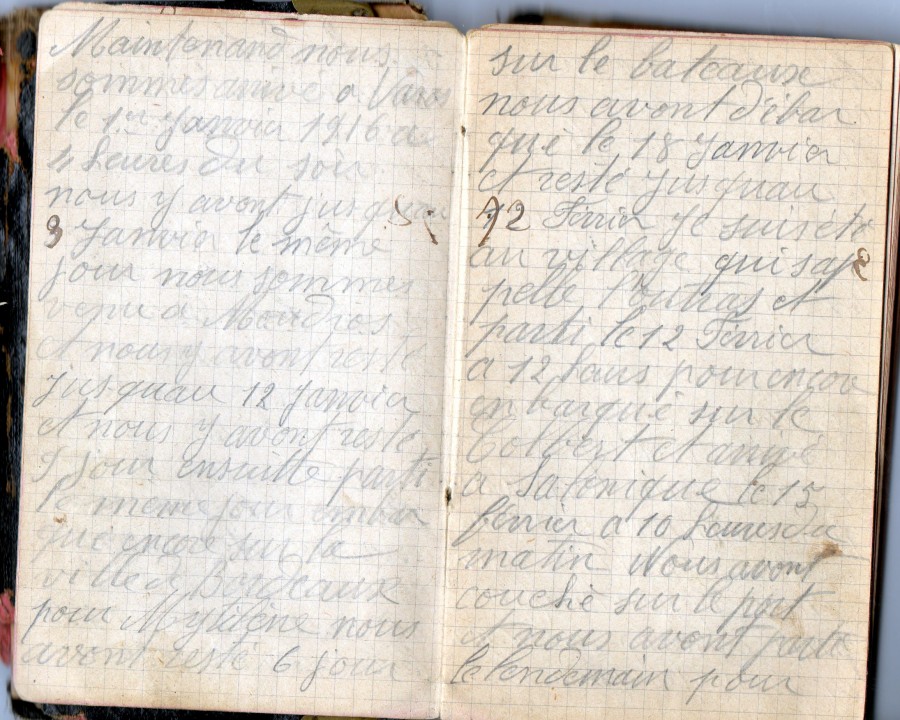 Maintenand nous
sommes arivé a
le 1er Janvier 1916 a
4 heures du soir
nous y avont jusquau
3 Janvier le même
jour nous sommes
venu a Moudros
et nous y avont resté
jusquau 12 Janvier
et nous y avont resté
9 jour ensuitte parti
le meme jour embar
qué encore sur la
ville de Bordeaux
pour Mytilène nous
avont resté 6 jour
sur le bateaux
nous avont débar
qué le 18 Janvier
et resté jusquau
12 Février Je suis été
au village qui sap
pelle et
parti le 12 Février
a 12 pour encor
enbarqué sur le
Colbert et arrivé
a Salonique le 15
février a 10 heures du
matin Nous avont
couché sur le port
et nous avont parti
le lendemain pour